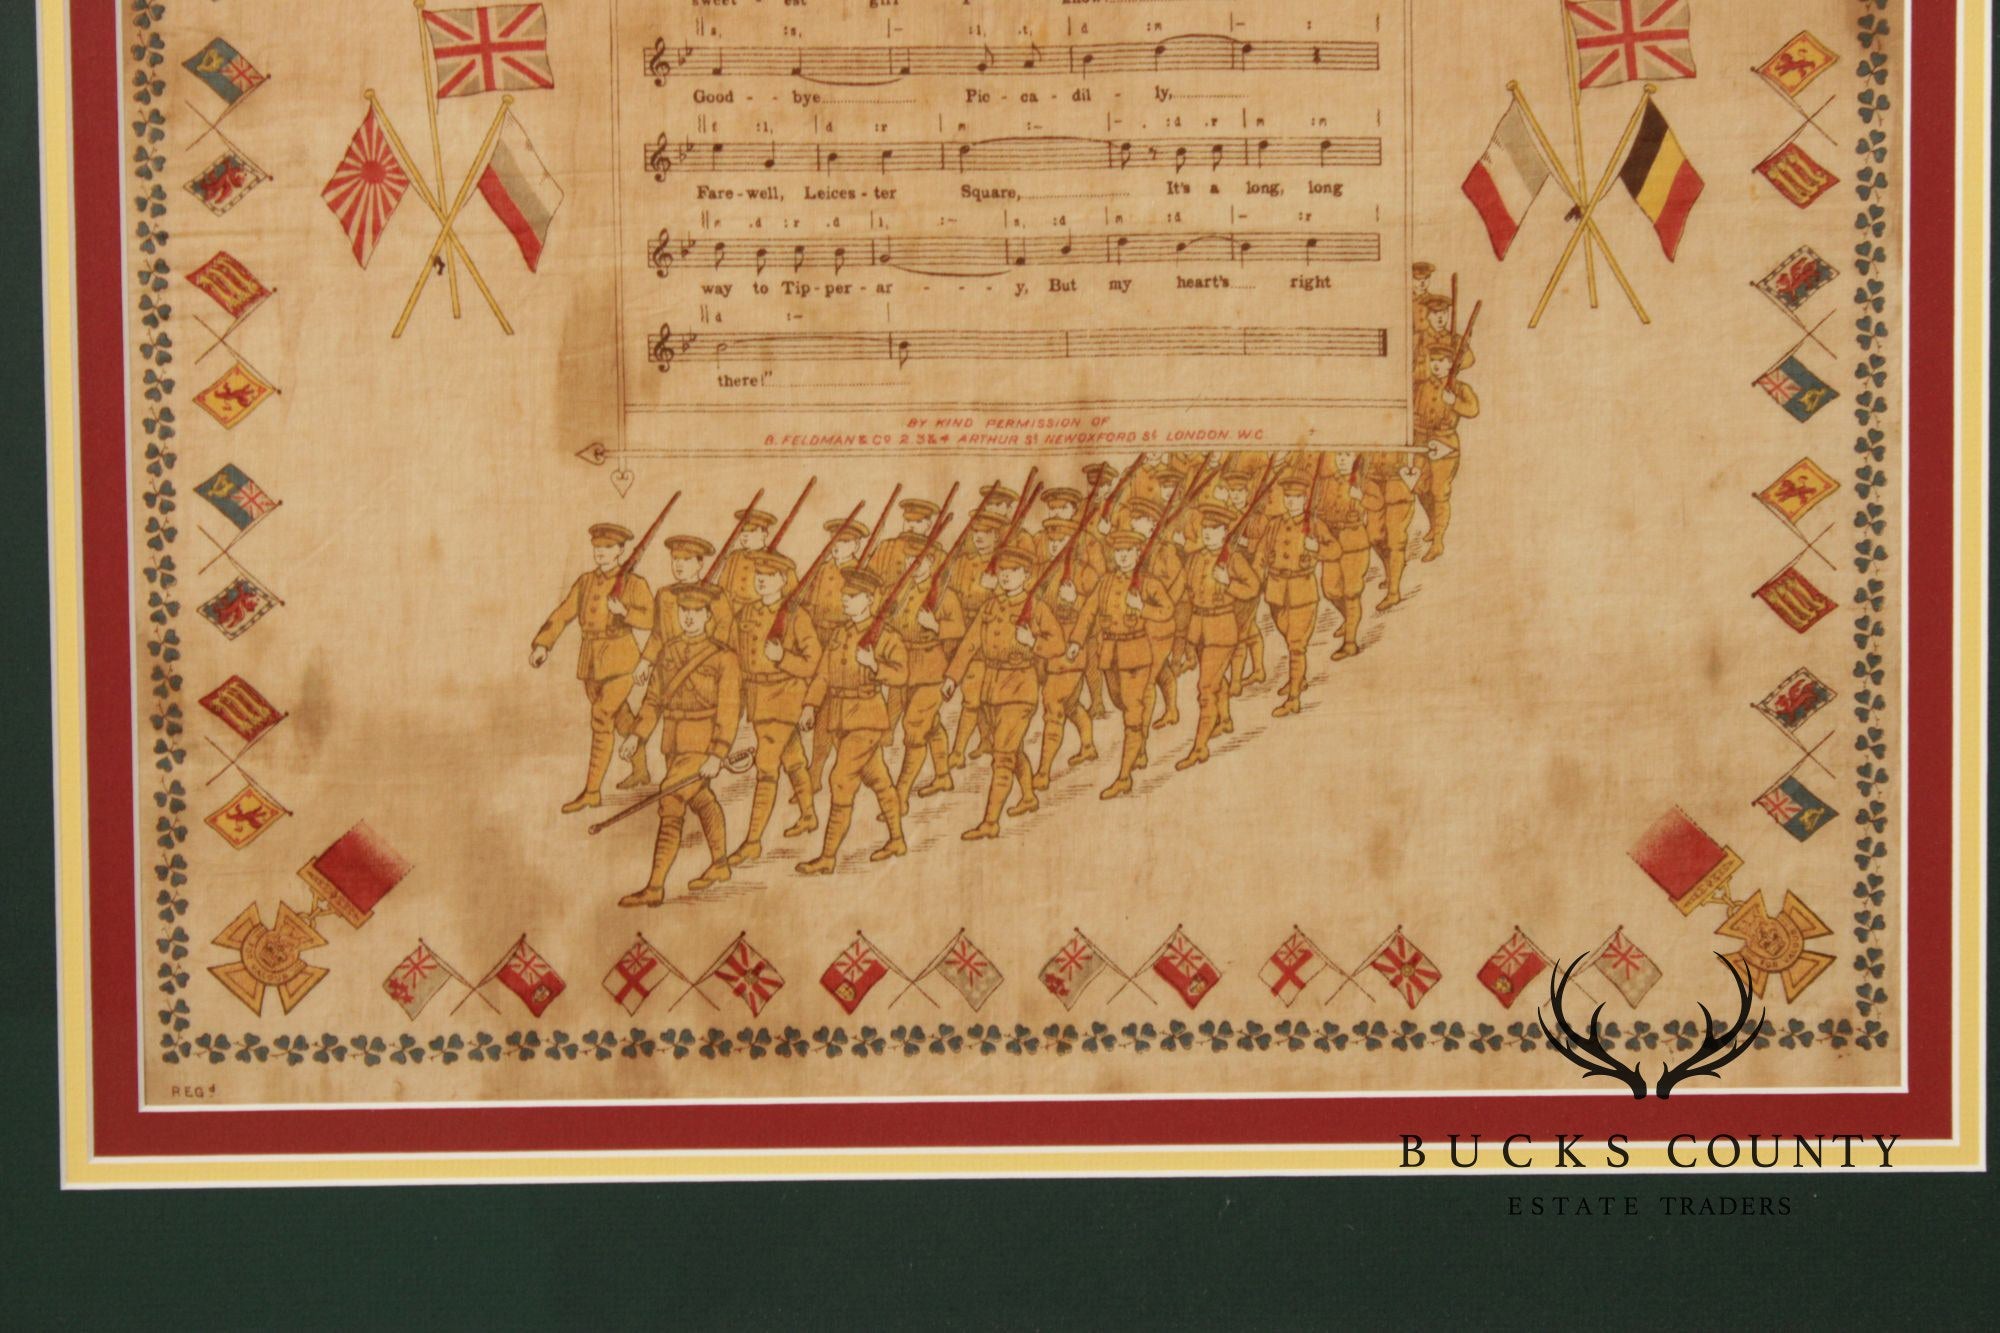 sweet - est girl I know!
Good - - bye Pic - ca - dil - ly,
Fare - well, Leices - ter Square, It's a long, long
way to Tip - per - ar - - - y, But my heart's right
there!"
BY KIND PERMISSION OF
B. FELDMAN & Co 2.3 & 4 ARTHUR St NEW OXFORD St LONDON. W.C
REGd
BUCKS COUNTY
ESTATE TRADERS